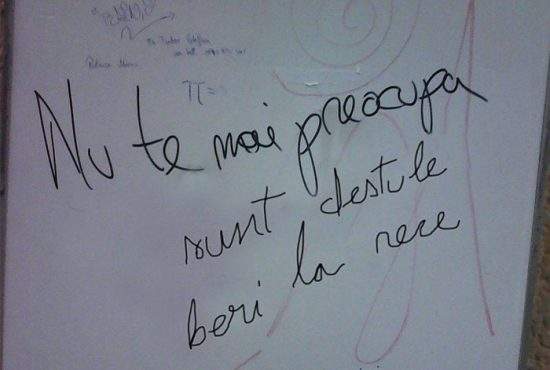 π=
Nu te mai preocupa
sunt destule
beri la rece